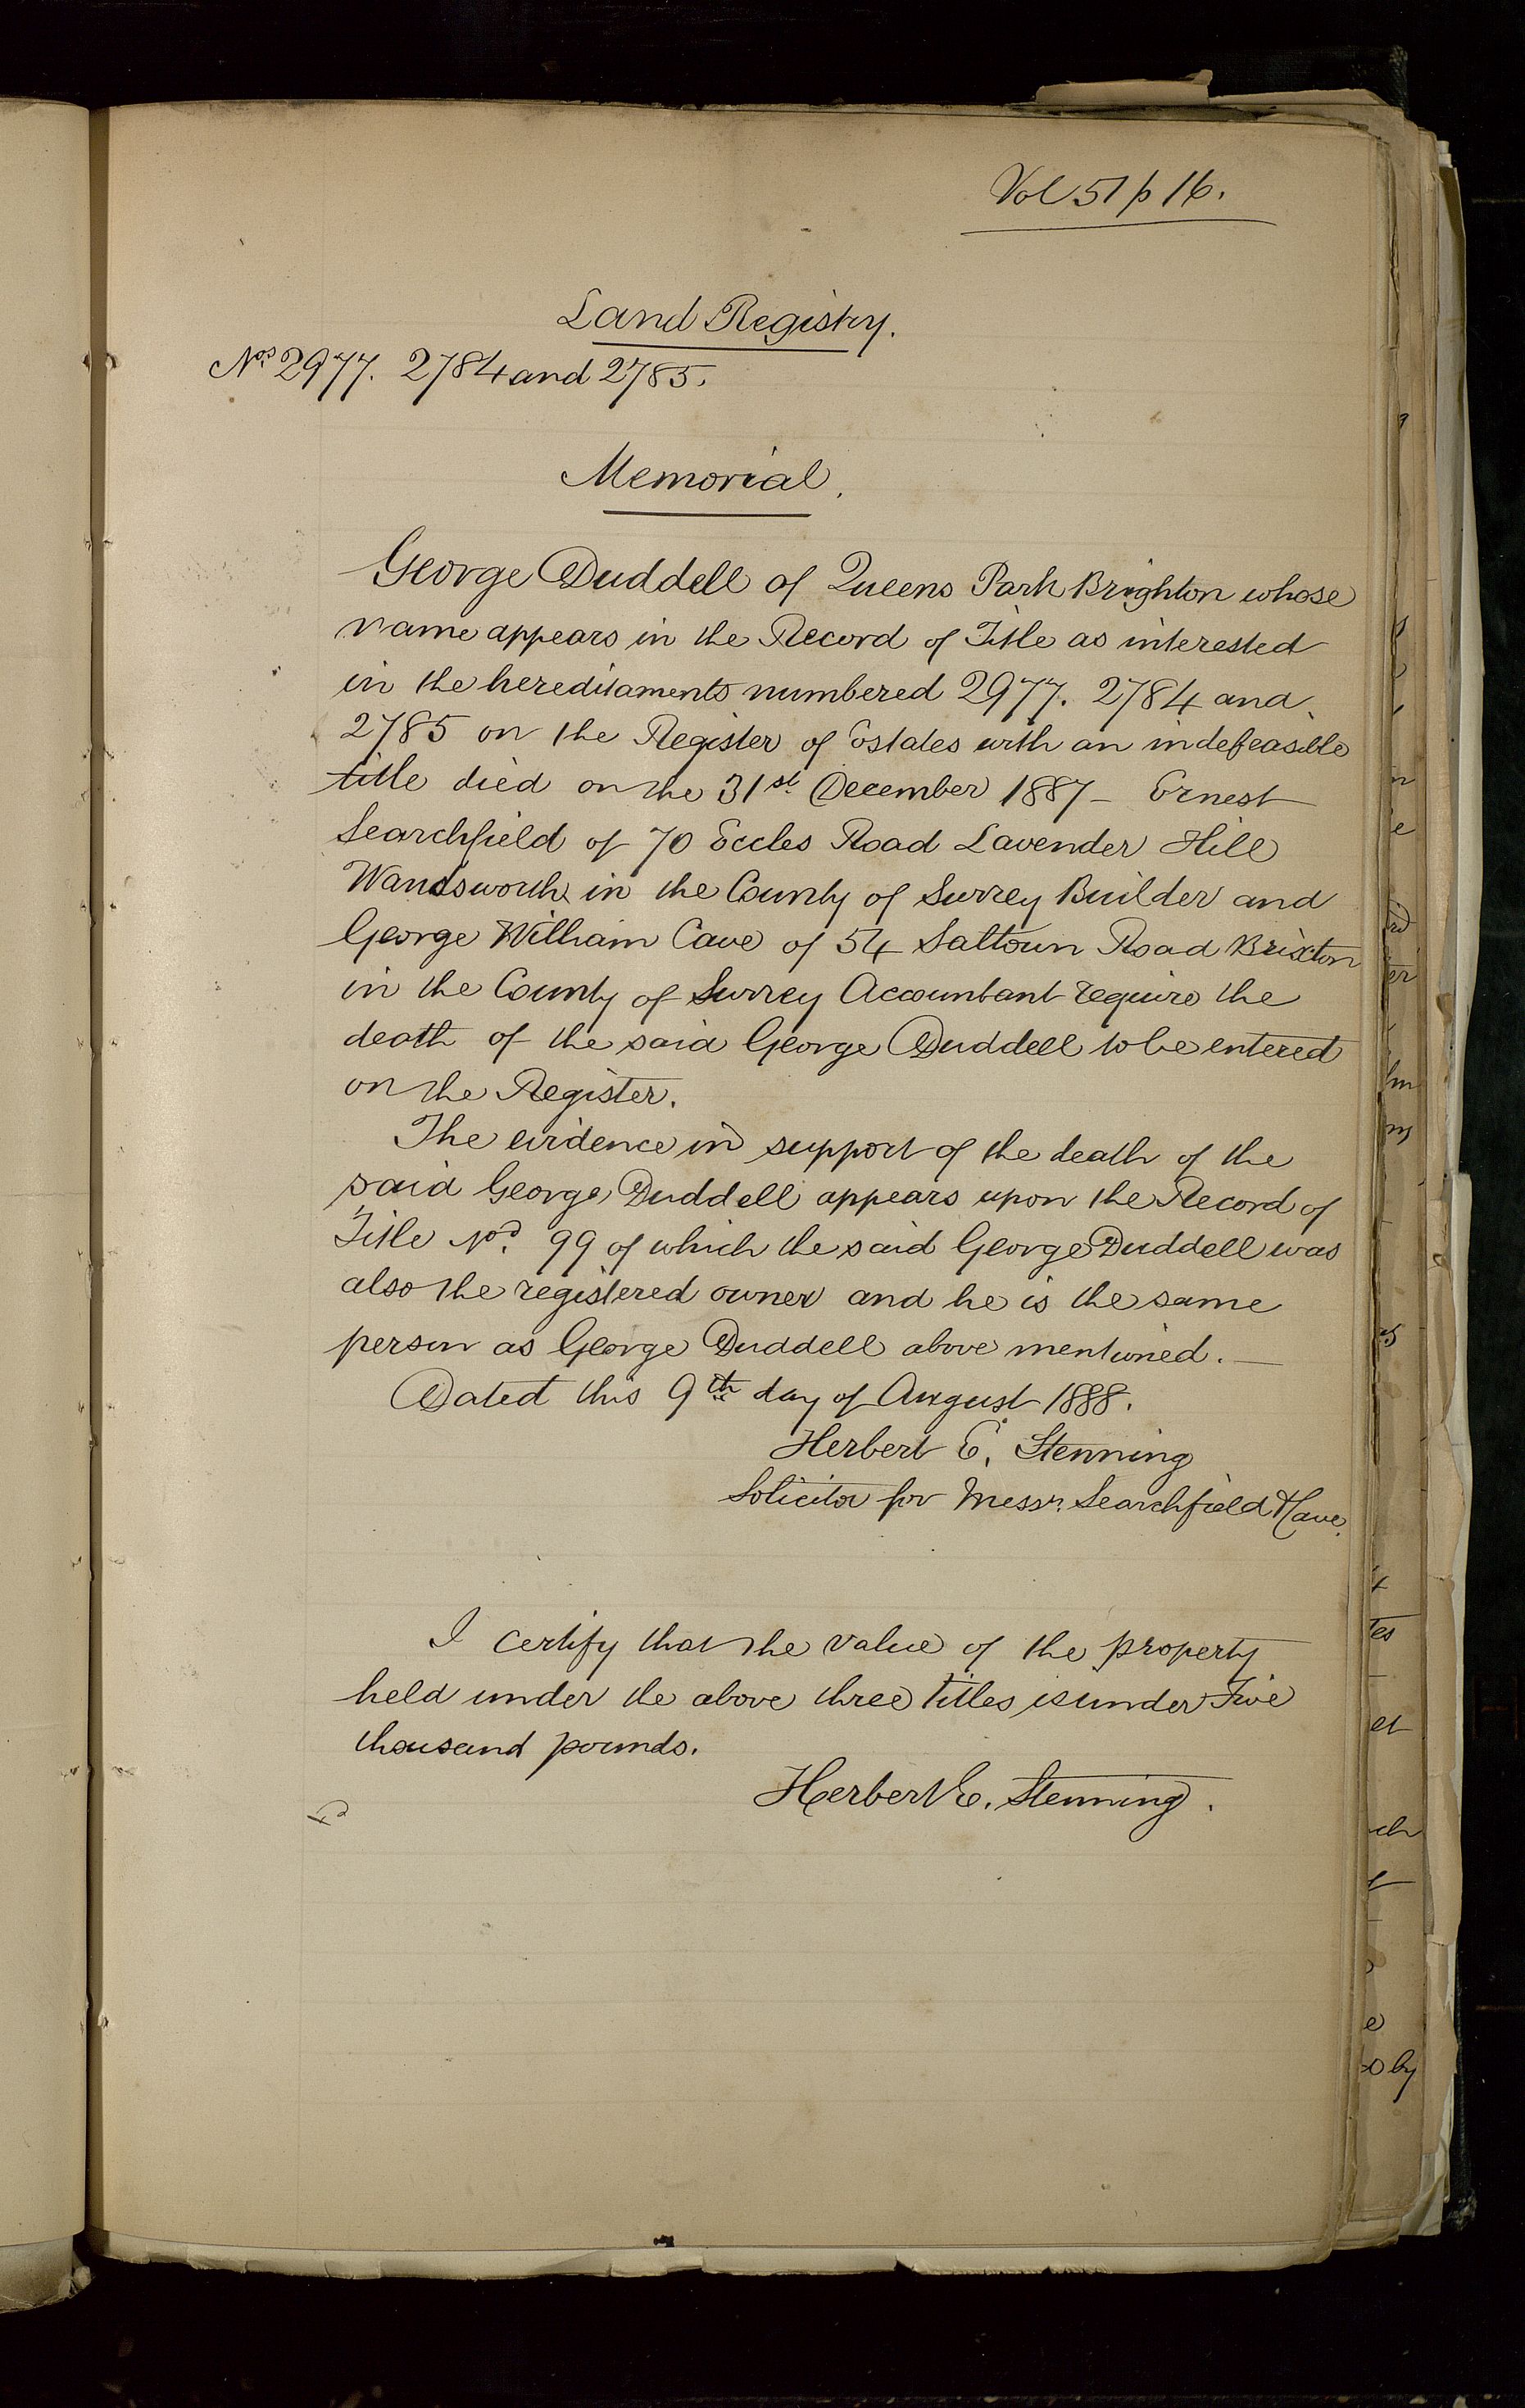 Vol 51 p 16.
Land Registry.
Nos. 2977. 2784 and 2785.
Memorial.
George Duddell of Queens Park Brighton whose
name appears in the Record of Title as interested
in the hereditaments numbered 2977. 2784 and
2785 on the Register of Estates with an indefeasible
title died on the 31st. December 1887 – Ernest
Searchfield of 70 Eccles Road Lavender Hill
Wandsworth in the County of Surrey Builder and
George William Cave of 54 Saltoun Road Brixton
in the County of Surrey Accountant require the
death of the said George Duddell to be entered
on the Register.
The evidence in support of the death of the
said George Duddell appears upon the Record of
Title No. 99 of which the said George Duddell was
also the registered owner and he is the same
person as George Duddell above mentioned. —
Dated this 9th day of August 1888.
Herbert E. Stenning
Solicitor for Messrs. Searchfield & Cave.
I certify that the value of the property
held under the above three titles is under Five
thousand pounds.
Herbert E. Stenning.